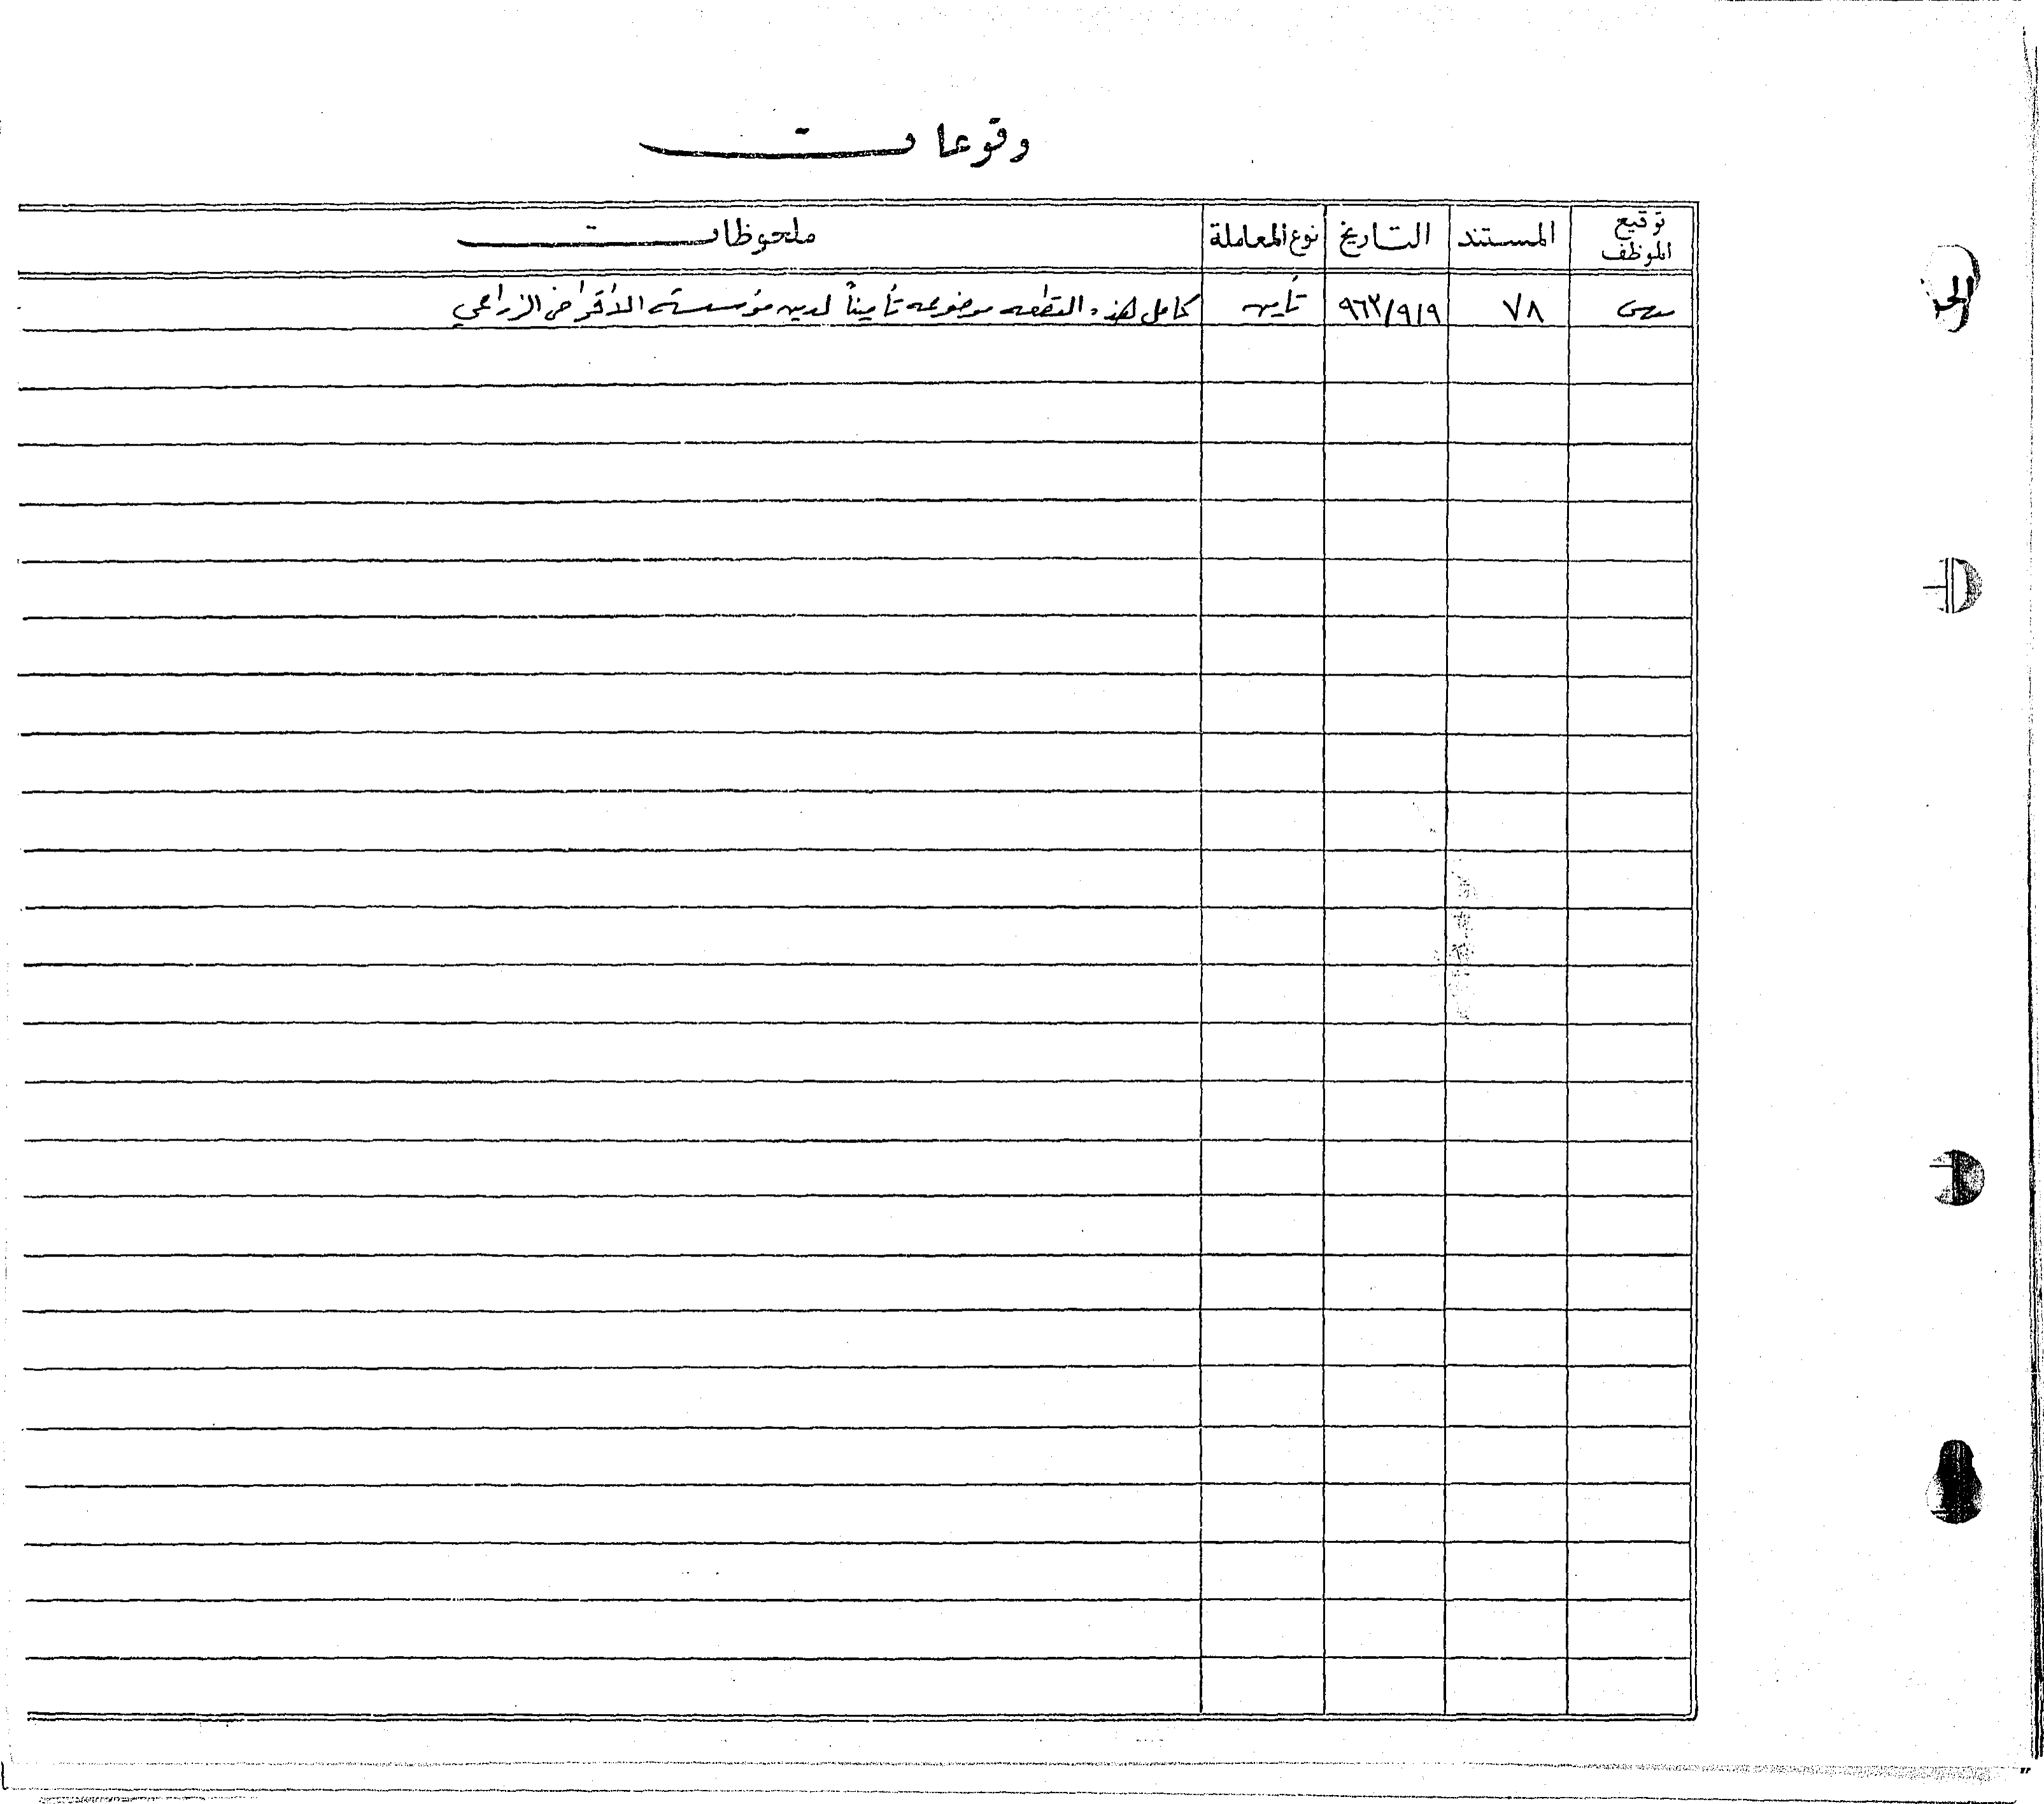 وقوعات
توقيع الموظف المستند التاريخ نوع المعاملة ملحوظات
٧٨ ٩٦٣/٩/٩ تأمين كامل هذه القطعه موضوعه تأميناً لدين مؤسسة الأقراض الزراعي